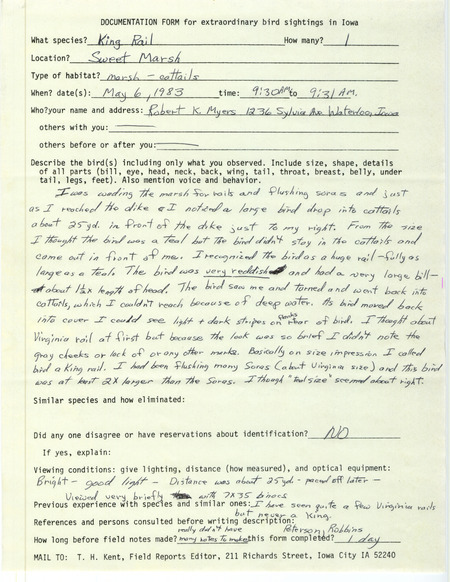 DOCUMENTATION FORM for extraordinary bird sightings in Iowa
What species? King Rail How many? 1
Location? Sweet Marsh
Type of habitat? marsh - cattails
When? date(s): May 6, 1983 time: 9:30 AM to 9:31 AM.
Who?your name and address: Robert K. Myers 1236 Sylvia Ave. Waterloo, Iowa
others with you:
others before or after you:
Describe the bird(s) including only what you observed. Include size, shape, details
of all parts (bill, eye, head, neck, back, wing, tail, throat, breast, belly, under
tail, legs, feet). Also mention voice and behavior.
I was wading the marsh for rails and flushing soras and just
as I reached the dike I noticed a large bird drop into cattails
about 25 yd. in front of the dike just to my right. From the size
I thought the bird was a Teal but the bird didn't stay in the cattails and
came out in front of me. I recognized the bird as a huge rail - fully as
large as a teal. The bird was very reddish and had a very large bill -
about 1½ x length of head. The bird saw me and turned and went back into
cattails, which I couldn't reach because of deep water. As bird moved back
into cover I could see light + dark stripes on flanks rear of bird. I thought about
Virginia rail at first but because the look was so brief I didn't note the
gray cheeks or lack of or any other marks. Basically on size impression I called
bird a King rail. I had been flushing many Soras (about Virginia size) and this bird
was at least 2X larger than the Soras. I though "teal size" seemed about right.
Similar species and how eliminated:
Did any one disagree or have reservations about identification? NO
If yes, explain:
Viewing conditions: give lighting, distance (how measured), and optical equipment:
Bright - good light - Distance was about 25 yd - paced off later -
Viewed very briefly with 7X35 binocs
Previous experience with species and similar ones: I have seen quite a few Virginia rails
but never a King.
References and persons consulted before writing description: Peterson, Robbins
really didn't have
How long before field notes made? many notes to make this form completed? 1 day
MAIL TO: T. H. Kent, Field Reports Editor, 211 Richards Street, Iowa City IA 52240